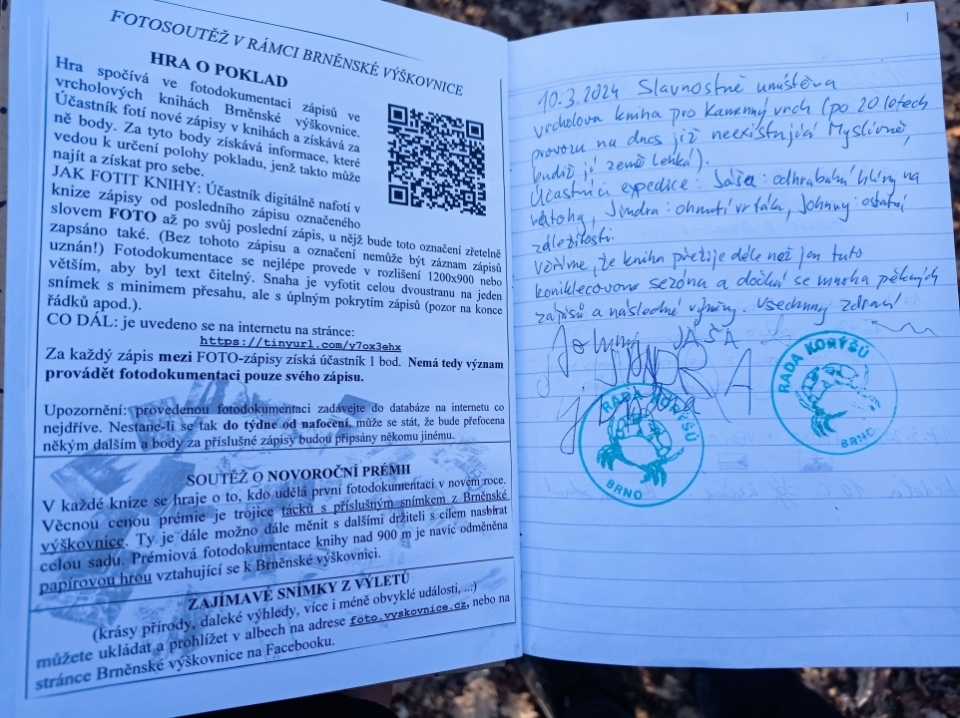 FOTOSOUTĚŽ V RÁMCI BRNĚNSKÉ VÝŠKOVNICE
HRA O POKLAD
Hra spočívá ve fotodokumentaci zápisů ve
vrcholových knihách Brněnské výškovnice.
Účastník fotí nové zápisy v knihách a získává za
ně body. Za tyto body získává informace, které
vedou k určení polohy pokladu, jenž takto může
najít a získat pro sebe.
JAK FOTIT KNIHY: Účastník digitálně nafotí v
knize zápisy od posledního zápisu označeného
slovem FOTO až po svůj poslední zápis, u nějž bude toto označení zřetelně
zapsáno také. (Bez tohoto zápisu a označení nemůže být záznam zápisů
uznán!) Fotodokumentace se nejlépe provede v rozlišení 1200x900 nebo
větším, aby byl text čitelný. Snaha je vyfotit celou dvoustranu na jeden
snímek s minimem přesahu, ale s úplným pokrytím zápisů (pozor na konce
řádků apod.).
CO DÁL: je uvedeno se na internetu na stránce:
https://tinyurl.com/y7ox3ehx
Za každý zápis mezi FOTO-zápisy získá účastník 1 bod. Nemá tedy význam
provádět fotodokumentaci pouze svého zápisu.
Upozornění: provedenou fotodokumentaci zadávejte do databáze na internetu co
nejdříve. Nestane-li se tak do týdne od nafocení, může se stát, že bude přefocena
někým dalším a body za příslušné zápisy budou připsány někomu jinému.
SOUTĚŽ O NOVOROČNÍ PRÉMII
V každé knize se hraje o to, kdo udělá první fotodokumentaci v novém roce.
Věcnou cenou prémie je trojice tácků s příslušným snímkem z Brněnské
výškovnice. Ty je dále možno dále měnit s dalšími držiteli s cílem nasbírat
celou sadu. Prémiová fotodokumentace knihy nad 900 m je navíc odměněna
papírovou hrou vztahující se k Brněnské výškovnici.
ZAJÍMAVÉ SNÍMKY Z VÝLETŮ
(krásy přírody, daleké výhledy, více i méně obvyklé události, ...)
můžete ukládat a prohlížet v albech na adrese foto.vyskovnice.cz, nebo na
stránce Brněnské výškovnice na Facebooku.
1
10.3.2024 Slavnostně umístěna
vrcholová kniha pro Kamenný vrch (po 20 letech
provozu na dnes již neexistující Myslivně,
budiž jí země lehká).
Účastníci expedice: Jáša: odhrabání hlíny na
Jindra: ohnutí vrtáku, Johnny: ostatní
záležitosti.
Věříme, že kniha přežije déle než jen tuto
koniklecovou sezónu a dočká se mnoha pěkných
zápisů a následné výměny. Všechny zdraví
Johnny JÁŠA
JINDRA
RADA KORÝŠŮ
BRNO
RADA KORÝŠŮ
BRNO